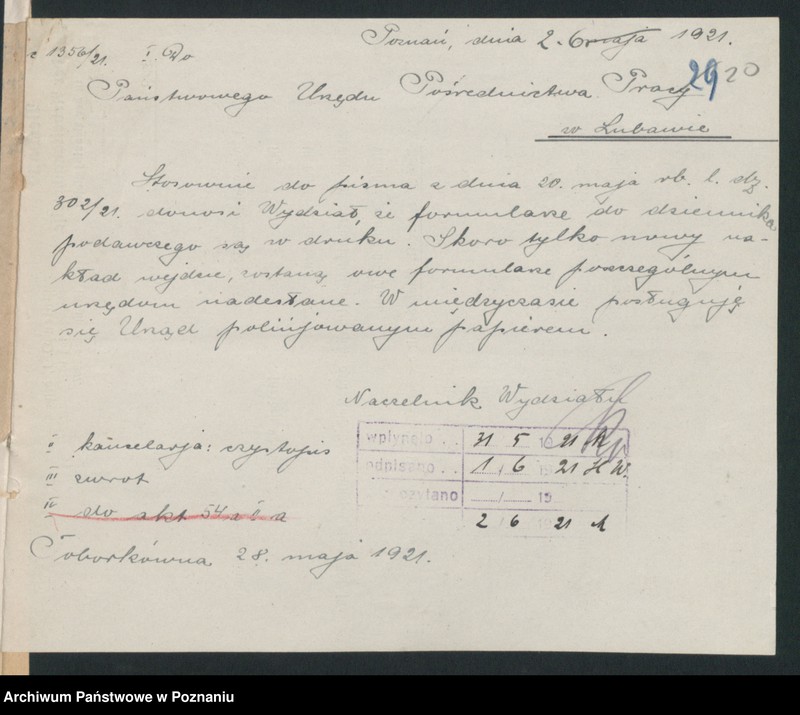 Poznań, dnia 2. 6 maja 1921.
1356/21. I. Do
2920
Państwowego Urzędu Pośrednictwa Pracy
w Lubawie
Stosownie do pisma z dnia 20. maja rb. l. dz.
302/21. donosi Wydział, że formularze do dziennika
podawczego są w druku. Skoro tylko nowy na-
kład wejdzie, zostaną owe formularze poszczególnym
urzędom nadesłane. W międzyczasie posługuję
się Urząd polinjowanym papierem.
Naczelnik Wydziału
II kancelarja: czystopis
III zwrot
IV do akt 54
wpłynęło . . 31 5. 19 21
odpisano . . 1 / 6 19 21
czytano __/__ 19
2 / 6 1921
28. maja 1921.
Archiwum Państwowe w Poznaniu